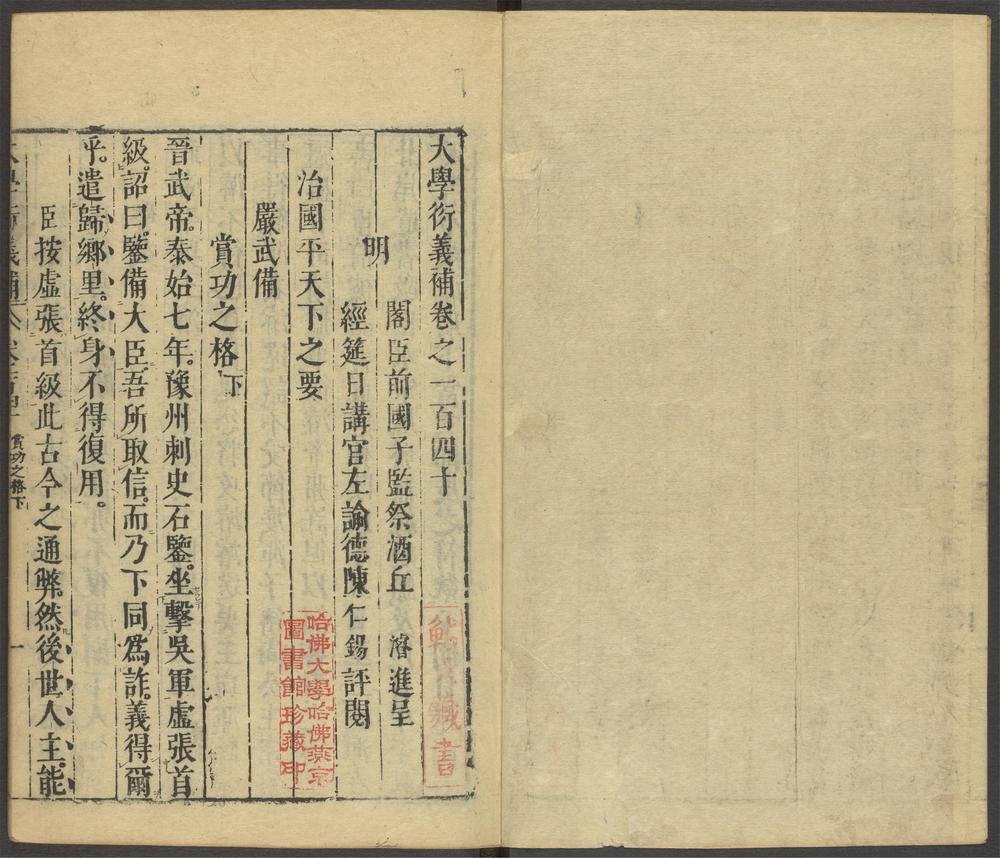 大學衍義補卷之一百四十
明
閣臣前國子監祭酒丘　濬進呈
經筵日講官左諭德陳仁錫評閱
治國平天下之要
嚴武備
賞功之格下
晉武帝。泰始七年。豫州刺史石鑒。坐擊吳軍虛張首
級。詔曰。鑒備大臣吾所取信。而乃下同爲詐。義得爾
乎。遣歸鄉里。終身不得復用。
臣按虛張首級此古今之通弊。然後世人主。能
大學衍義補
賞功之格下
一
藏書
哈佛大學哈佛燕京
圖書館珍藏印